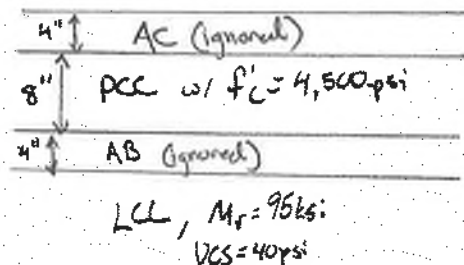 4" AC (ignored)
8" PCC w/ f'c = 4,500 psi
4" AB (ignored)
LCL, Mr = 95ksi
UCS = 40psi